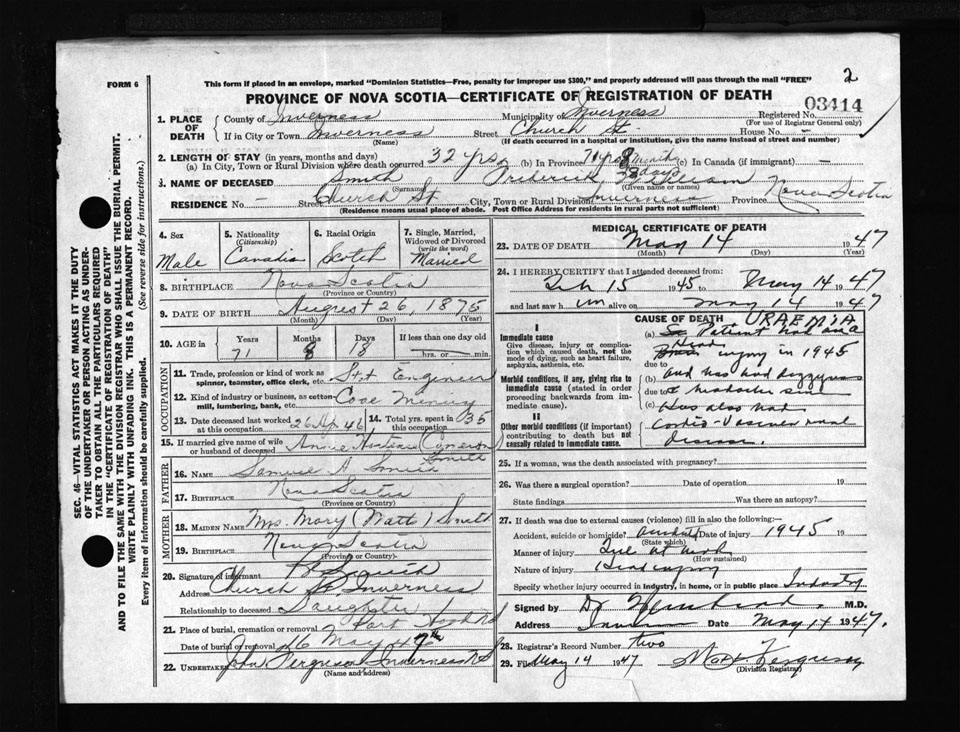 FORM 6
This form if placed in an envelope, marked "Dominion Statistics—Free, penalty for improper use $300," and properly addressed will pass through the mail "FREE"
2
PROVINCE OF NOVA SCOTIA—CERTIFICATE OF REGISTRATION OF DEATH
03414
1. PLACE OF DEATH
County of Inverness
Municipality of Inverness
Registered No.
(For use of Registrar General only)
If in City or Town Inverness
(Name)
Street Church St.
House No. —
(If death occurred in a hospital or institution, give the name instead of street and number)
2. LENGTH OF STAY (in years, months and days)
(a) In City, Town or Rural Division where death occurred 32 yrs
(b) In Province 71 yrs 8 months 18 days
(c) In Canada (if immigrant) —
3. NAME OF DECEASED Smith Frederick William
(Surname)
(Given name or names)
RESIDENCE No. — Street Church St. City, Town or Rural Division Inverness Province Nova Scotia
(Residence means usual place of abode. Post Office Address for residents in rural parts not sufficient)
4. Sex
Male
5. Nationality
(Citizenship)
Canadian
6. Racial Origin
Scotch
7. Single, Married, Widowed or Divorced
(write the word)
Married
8. BIRTHPLACE Nova Scotia
(Province or Country)
9. DATE OF BIRTH August 26, 1875
(Month) (Day) (Year)
10. AGE in
Years 71
Months 8
Days 18
If less than one day old
hrs. or min.
OCCUPATION
11. Trade, profession or kind of work as spinner, teamster, office clerk, etc. Engineer
12. Kind of industry or business, as cotton-mill, lumbering, bank, etc.
13. Date deceased last worked at this occupation 26 Ap 46
14. Total yrs. spent in this occupation 35
15. If married give name of wife or husband of deceased Annie (Cameron) Smith
FATHER
16. NAME Samuel A Smith
17. BIRTHPLACE Nova Scotia
(Province or Country)
MOTHER
18. MAIDEN NAME Mrs. Mary (Watt) Smith
19. BIRTHPLACE Nova Scotia
(Province or Country)
20. Signature of informant
Address Church St Inverness
Relationship to deceased Daughter
21. Place of burial, cremation or removal Port Hood
Date of burial or removal 16 May
22. Undertaker John Ferguson Inverness NS
(Name and address)
MEDICAL CERTIFICATE OF DEATH
23. DATE OF DEATH May 14 1947
(Month) (Day) (Year)
24. I HEREBY CERTIFY that I attended deceased from:
Feb 15 1945 to May 14 1947
and last saw him alive on May 14 1947
CAUSE OF DEATH URAEMIA
I
Immediate cause
Give disease, injury or complication which caused death, not the mode of dying, such as heart failure, asphyxia, asthenia, etc.
(a) Patient had a
Head injury in 1945
due to
Morbid conditions, if any, giving rise to immediate cause (stated in order proceeding backwards from immediate cause).
(b) and has had dizzyness
due to
headache since
(c) Has also had
II
Other morbid conditions (if important) contributing to death but not causally related to immediate cause.
Cardio-Vascular renal
disease.
25. If a woman, was the death associated with pregnancy?
26. Was there a surgical operation? Date of operation 19
State findings Was there an autopsy?
27. If death was due to external causes (violence) fill in also the following:—
Accident, suicide or homicide? accident Date of injury 1945 19
(State which)
Manner of injury at work
(How sustained)
Nature of injury Head injury
Specify whether injury occurred in industry, in home, or in public place Industry
Signed by Dr M.D.
Address Inverness Date May 14 1947.
28. Registrar's Record Number two
29. Filed May 14 1947 Ferguson
(Division Registrar)
SEC. 46—VITAL STATISTICS ACT MAKES IT THE DUTY OF THE UNDERTAKER OR PERSON ACTING AS UNDERTAKER TO OBTAIN ALL THE PARTICULARS REQUIRED IN THE "CERTIFICATE OF REGISTRATION OF DEATH" AND TO FILE THE SAME WITH THE DIVISION REGISTRAR WHO SHALL ISSUE THE BURIAL PERMIT.
WRITE PLAINLY WITH UNFADING INK. THIS IS A PERMANENT RECORD.
Every item of information should be carefully supplied. (See reverse side for instructions.)